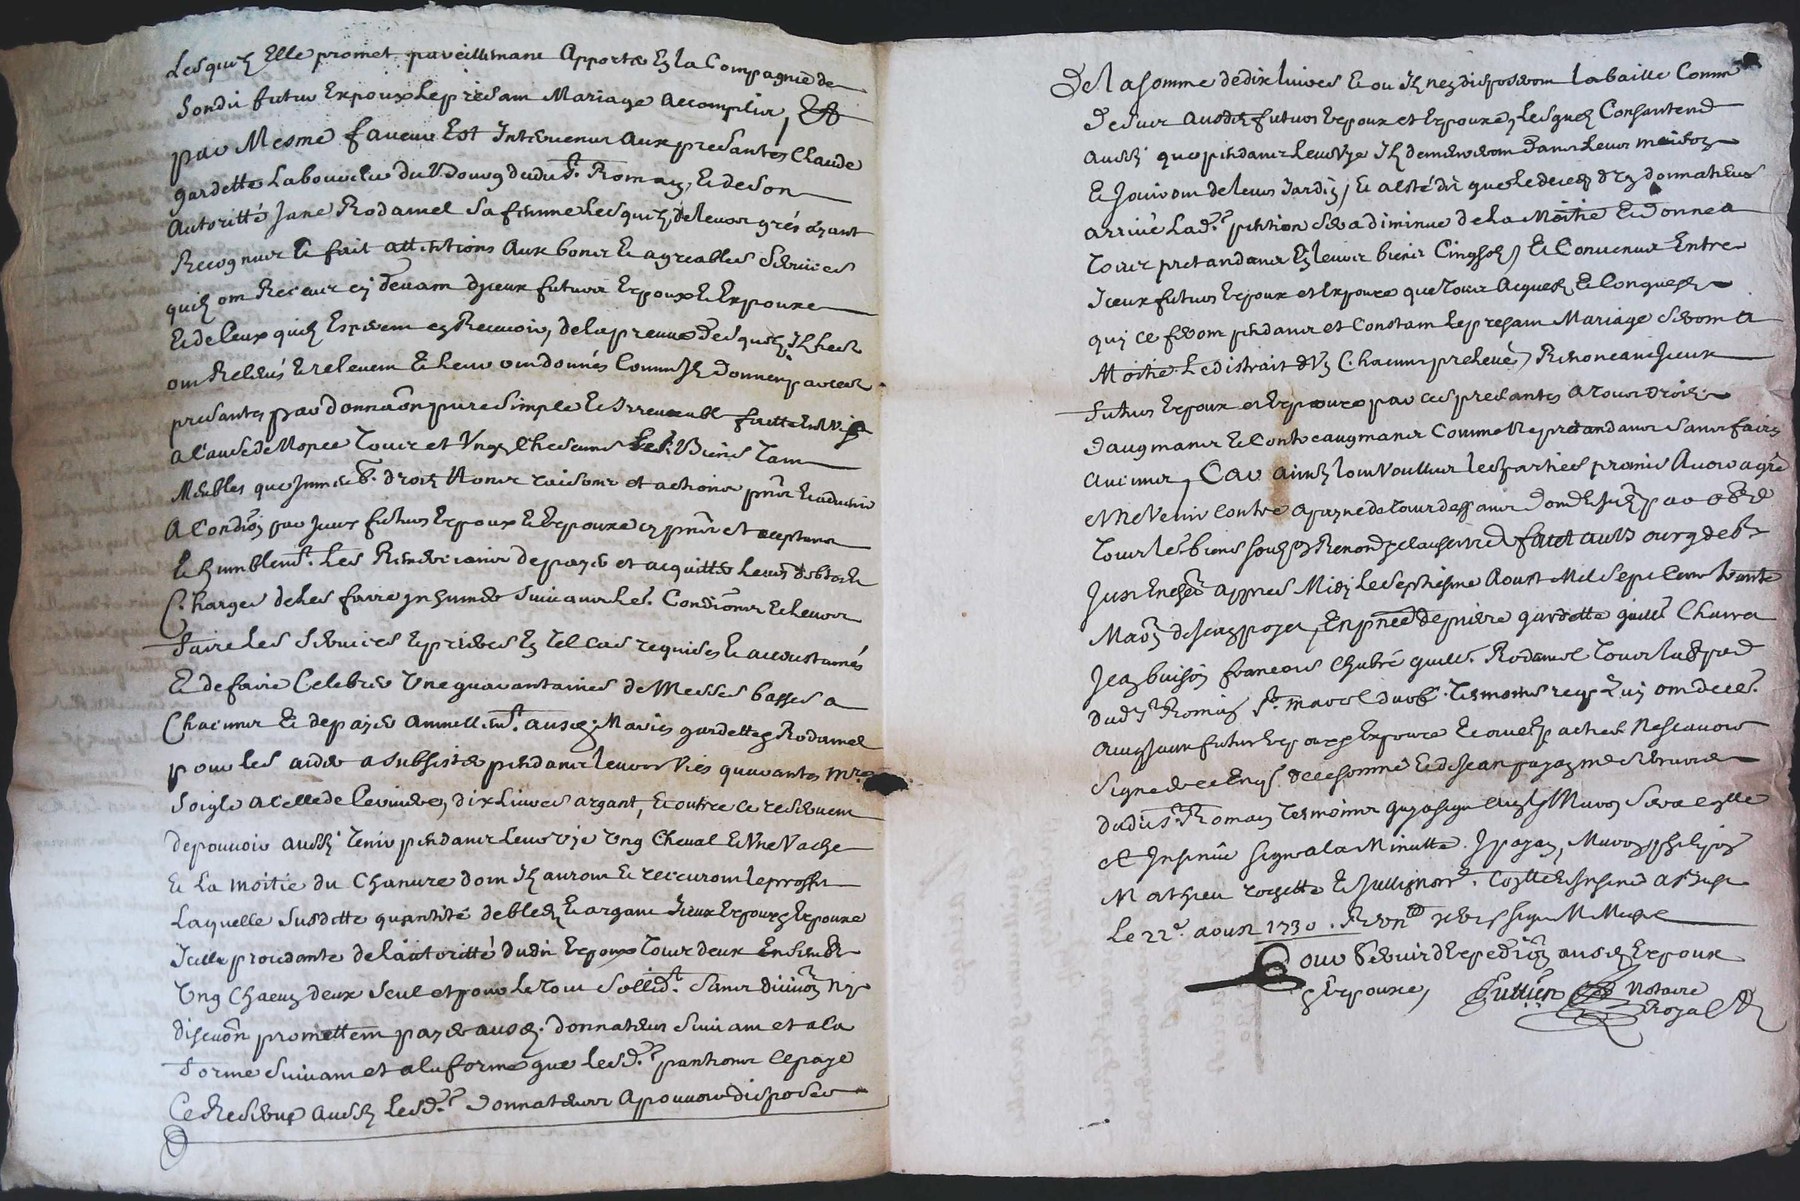 Lesquels Elle promet pareillemant Apporter En la Compagnie de
Son dit futur Expoux le presant Mariage accomplir, Et
par Mesme faveur Est Intervenus Aux presantes Claude
gardette Laboureur du Bourg dudit St. Romain, Et de Son
Autoritté Jane Rodamel Sa femme Lesquels de leurs grés ayant
Recognus Et fait attentions Aux bons Et agreables Services
quils ont Receus cy devant d'yceux futurs Expoux Et Expouxe
Et de Ceux quils Esperent en Recevoir, de la preuve desquels Il les
ont Relevés Et relevent Et leur ont donnés Comme Ils donnent par ces
presantes par donnaon pure simple Et Irrevocable faitte Entre vifs
a Cause de Nopce Tous et Ungs Chescuns Les. Biens Tant
Meubles que Immeub. droits Noms raisons et actions pnts Et advenir
A Condiõn par Iceux futurs Expoux Et Expouxe cy pnts et aceptans
Et humblemt. Les Remercians de payer et acquitter leurs debtes Et
Charges de les faire Inhumer Suivant les. Condiõns Et leurs
faire les Services Et prieres En tel cas requises Et accoustumés
Et de faire Celebrer Une quarantaines de Messes basses a
Chacuns Et de payer Annuellemt. ausd. Mariés gardette & Rodamel
pour les aider a subsister pendant leurs Viés quarantes mres
Soigle a Celle de Cervieres, dix Livres argant, Et outre ce reservent
de pouvoir aussi Tenir pendant leurs Vie Ung Cheval Et Une Vache
Et La moitie du Chanvre dont Ils auront Et recevront le proffit
Laquelle Susditte quantité de bled Et argant Iceux Expoux & Expouxe
Icelle procedante de l'autoritté dudit Expoux Tous deux Ensembt
Ung Chacun deux Seul et pour le Tout Sollidt. Sans division Ny
discuõn promettent payer ausd. donnateurs Suivant et a la
forme Suivant et a la forme que lesd. pantions Ce paye
Ce Reserve Aussi lesd. donnateurs a pouvoir disposer
De la somme de dix livres Et ou Ils n'en disposeront la baille Comm
dessus Ausdits futurs Expoux et Expouxe, Lesquels Consantend
aussi que pendant leurs Vye Ils demeureront dans leurs maison
Et Jouiront de leurs Jardin, Et a Esté dit que le deced d'un donnateurs
arrivé lad. pention Sera diminue de la Moitie Et donne a
Tous pretandans En leurs biens Cinq sols, Et Convenus Entre
Iceux futurs Expoux et Expouxe que Tous Acquests Et Conquests
qui ce feront pendant et Constant le presant Mariage Seront a
Moitie Le distrait d'Un Chacuns preleve, Renonceant Iceux
futurs Expoux et Expouxe par ces presantes a tous droits
d'augmans Et Contreaugmans Comme Ne pretandans sans faire
aucuns, Car ainsi l'ont Voullus lesd parties promis Avoir agré
et Ne Venir Contre a payne de tous despans dom. Et Int. par obe de
Tous les biens Soub. Renond. Clauserved fait au Bourg de St
Just En Chet appres Midi Le Septiesme Aoust Mil Sept Cent trante
Maon de Jean payen, En pnce de pierre gardette guill. Charra
Jean buison francois Chabré guill. Rodamel Tous laud pnd
dud. St Romain St. Marcel d'urfé. Tesmoins reqs qui ont declé.
avec Iceux futurs Expoux & Expouxe Et aud. parties Ne Scavoir
Signer de ce Enqs. de ce Sommé Et de Jean payen me Serrurier
dudit St. Romain Tesmoins qui a Signe
et Insinué Signe a la Minutte. J payen, Mivon, philipon
Mathieu rozette Et Jullien nore. Con. lle Et Insinué a St Just
Le 22e. aoust 1730. Reçu Signé M Muset
Pour Servir d'Expediõn ausd. Expoux
& Expouxe, Jullien Notaire
Royal